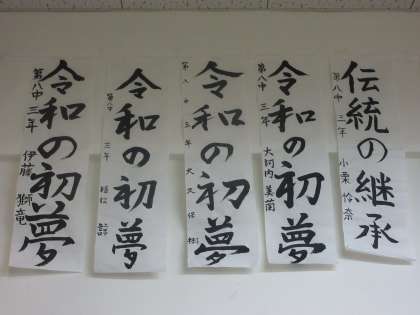 伝統の継承
第八中 三年 小栗怜奈
令和の初夢
第八中 三年 大河内美蘭
令和の初夢
第八中三年 大久保樹
令和の初夢
第八中 三年
令和の初夢
第八中 三年 伊藤獅竜